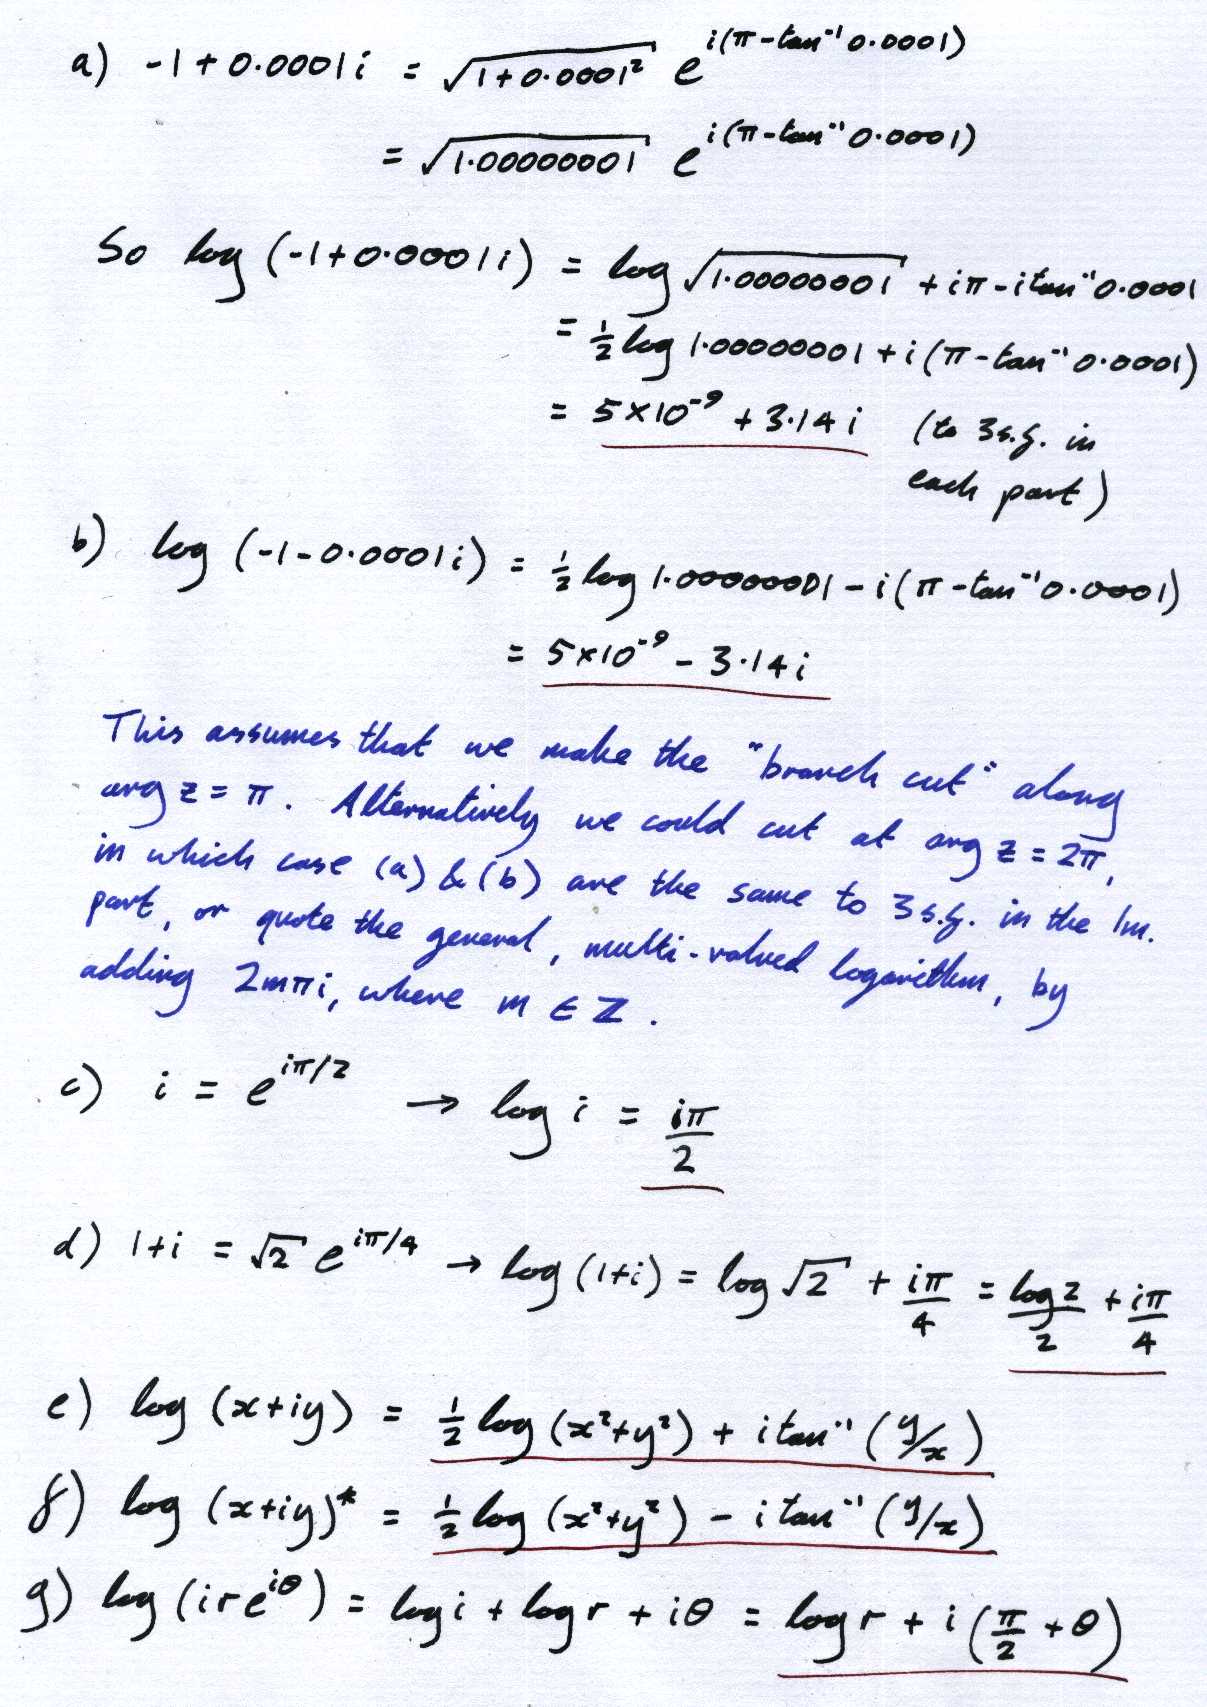 a) -1 + 0.0001i = √(1 + 0.0001²) e^{i(π - tan⁻¹ 0.0001)}
= √1.00000001 e^{i(π - tan⁻¹ 0.0001)}
So log (-1 + 0.0001i) = log √1.00000001 + iπ - i tan⁻¹ 0.0001
= ½ log 1.00000001 + i(π - tan⁻¹ 0.0001)
= 5×10⁻⁹ + 3.14i (to 3 s.f. in
each part)
b) log (-1 - 0.0001i) = ½ log 1.00000001 - i(π - tan⁻¹ 0.0001)
= 5×10⁻⁹ - 3.14i
This assumes that we make the "branch cut" along
arg z = π. Alternatively we could cut at arg z = 2π,
in which case (a) & (b) are the same to 3 s.f. in the Im.
part, or quote the general, multi-valued logarithm, by
adding 2mπi, where m ∈ ℤ.
c) i = e^{iπ/2} → log i = iπ/2
d) 1+i = √2 e^{iπ/4} → log (1+i) = log √2 + iπ/4 = log 2/2 + iπ/4
e) log (x+iy) = ½ log (x²+y²) + i tan⁻¹ (y/x)
f) log (x+iy)* = ½ log (x²+y²) - i tan⁻¹ (y/x)
g) log (i r e^{iθ}) = log i + log r + iθ = log r + i(π/2 + θ)